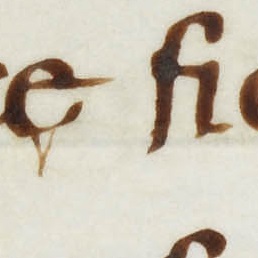 ę fi